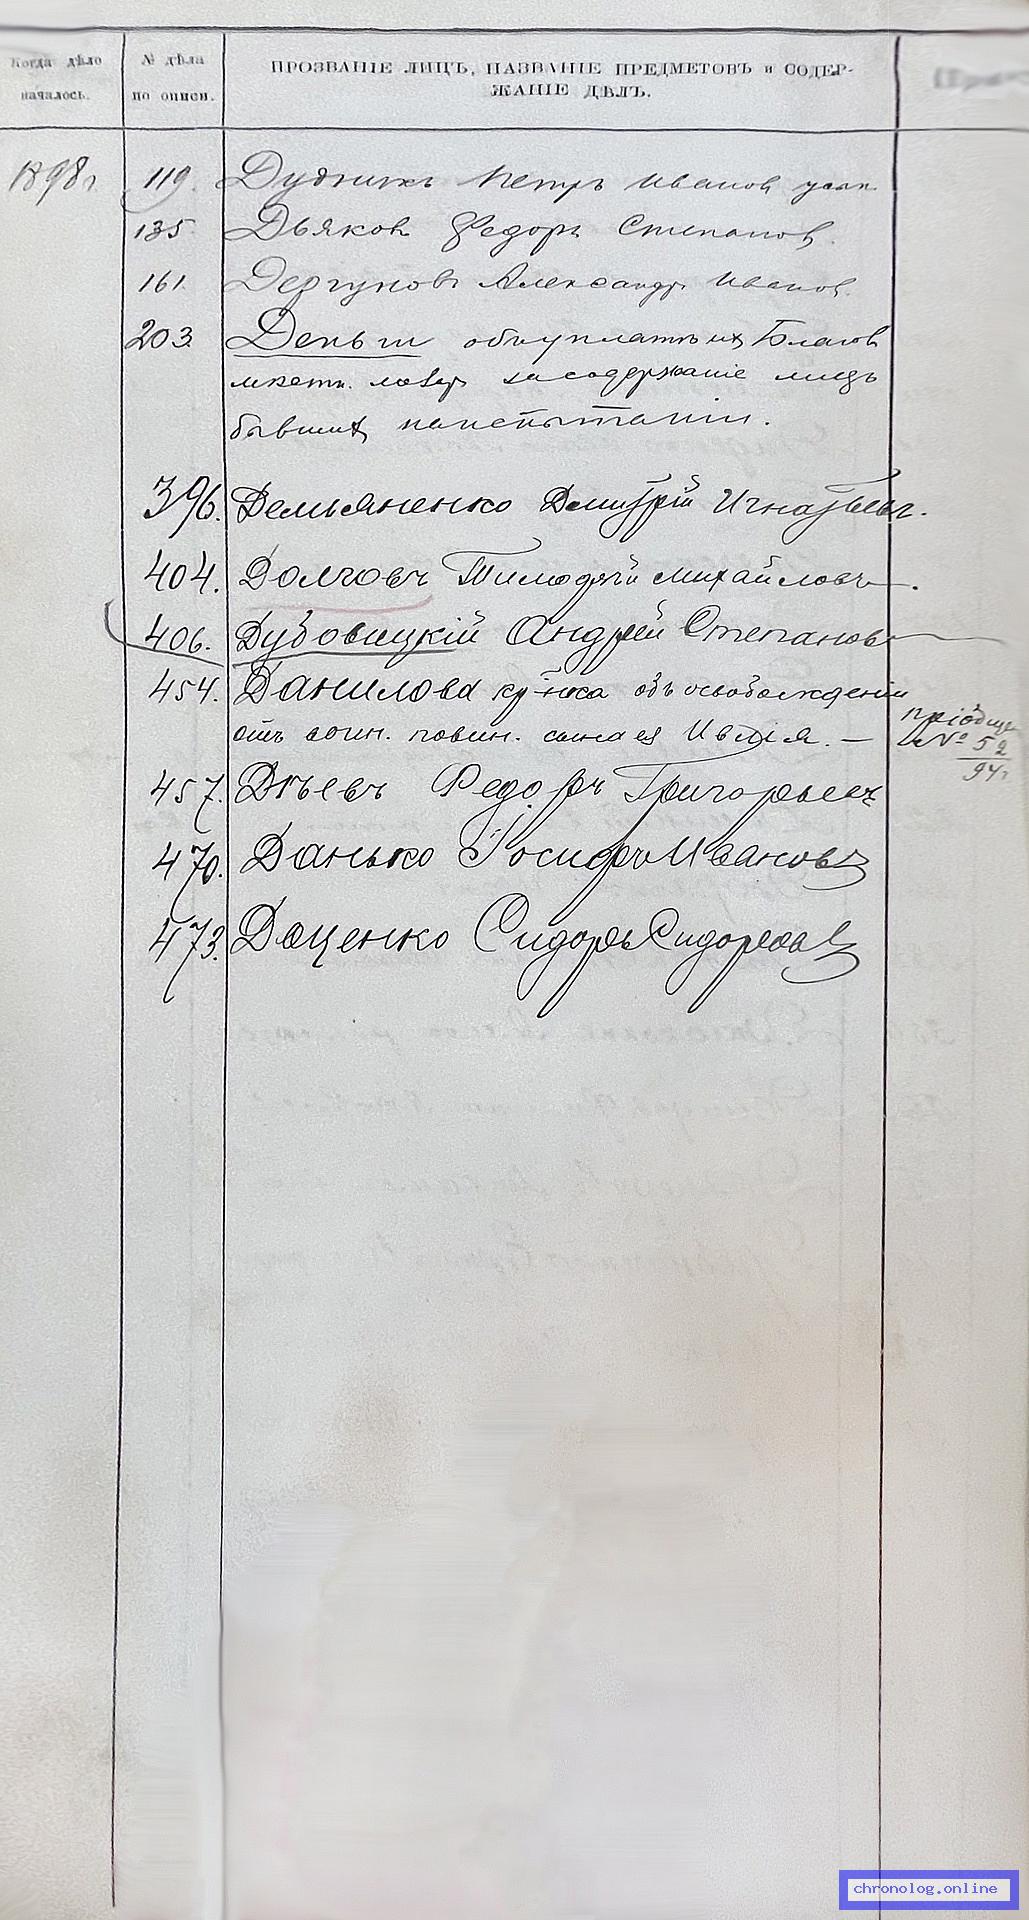 Когда дѣло
началось.
№ дѣла
по описи.
ПРОЗВАНІЕ ЛИЦЪ, НАЗВАНІЕ ПРЕДМЕТОВЪ и СОДЕР-
ЖАНІЕ ДѢЛЪ.
1898 г.
119. Дудникъ Петръ Иванов
135 Дьяков Федоръ Степанов.
161. Дергуновъ Александръ Иванов.
203. Деньги объ уплатѣ их Благов
за содержаніе лицъ
бывших на испытаніи.
396. Демьяненко Дмитрій Игнатьевъ.
404. Долговъ Тимофей Михайловъ.
406. Дубовицкій Андрей Степановъ
454. Данилова объ освобожденіи
отъ воин. повин. сына ея —
пріобще
№ 52
94 г
457. Дѣевъ Федоръ Григорьевъ
470. Данько Іосифъ Ивановъ
473. Доценко Сидоръ Сидоровъ
chronolog.online